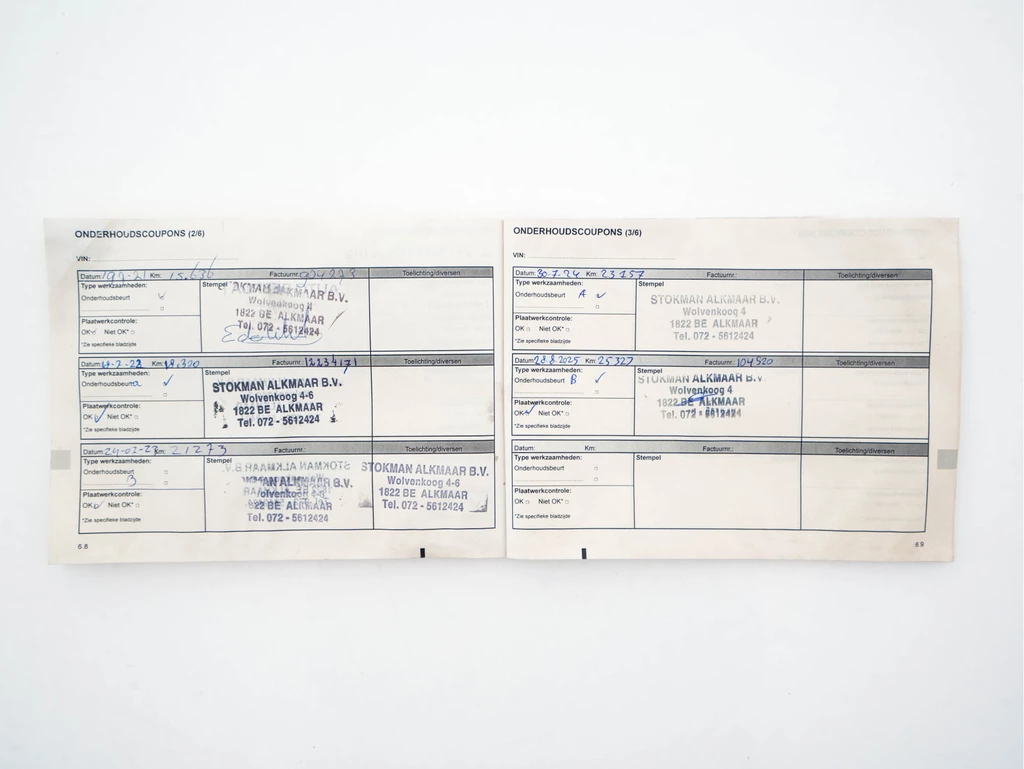 ONDERHOUDSCOUPONS (2/6)
VIN:
Datum: Km: 15.636 Factuurnr.: Toelichting/diversen
Type werkzaamheden: Stempel
Onderhoudsbeurt
ALKMAAR B.V.
Wolvenkoog 4
1822 BE ALKMAAR
Tel. 072 - 5612424
Plaatwerkcontrole:
OK Niet OK*
*Zie specifieke bladzijde
Datum: Km: Factuurnr.: Toelichting/diversen
Type werkzaamheden: Stempel
Onderhoudsbeurt
STOKMAN ALKMAAR B.V.
Wolvenkoog 4-6
1822 BE ALKMAAR
Tel. 072 - 5612424
Plaatwerkcontrole:
OK Niet OK*
*Zie specifieke bladzijde
Datum: Km: 21273 Factuurnr.: Toelichting/diversen
Type werkzaamheden: Stempel
Onderhoudsbeurt
B
STOKMAN ALKMAAR B.V.
Wolvenkoog 4-6
1822 BE ALKMAAR
Tel. 072 - 5612424
STOKMAN ALKMAAR B.V.
Wolvenkoog 4-6
1822 BE ALKMAAR
Tel. 072 - 5612424
Plaatwerkcontrole:
OK Niet OK*
*Zie specifieke bladzijde
6.8
ONDERHOUDSCOUPONS (3/6)
VIN:
Datum: 30-7-24 Km: 23157 Factuurnr.: Toelichting/diversen
Type werkzaamheden: Stempel
Onderhoudsbeurt A
STOKMAN ALKMAAR B.V.
Wolvenkoog 4
1822 BE ALKMAAR
Tel. 072 - 5612424
Plaatwerkcontrole:
OK Niet OK*
*Zie specifieke bladzijde
Datum: 28.8.2025 Km: 25327 Factuurnr.: 104520 Toelichting/diversen
Type werkzaamheden: Stempel
Onderhoudsbeurt B
STOKMAN ALKMAAR B.V.
Wolvenkoog 4
1822 BE ALKMAAR
Tel. 072 - 5612424
Plaatwerkcontrole:
OK Niet OK*
*Zie specifieke bladzijde
Datum: Km: Factuurnr.: Toelichting/diversen
Type werkzaamheden: Stempel
Onderhoudsbeurt
Plaatwerkcontrole:
OK Niet OK*
*Zie specifieke bladzijde
6.9